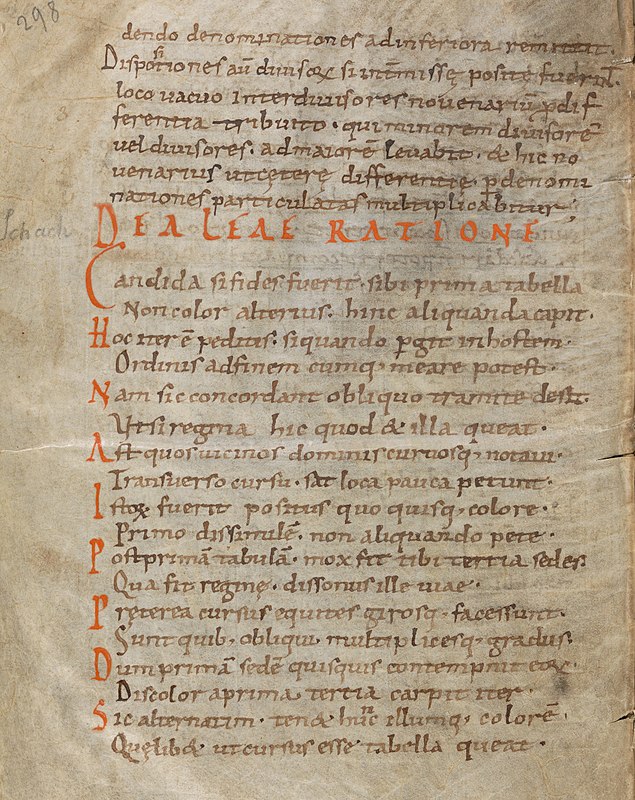 298
dendo denominationes ad inferiora remittit.
Disportiones aū diuisoꝝ si int̄missę positę fuerint.
loco uacuo interdiuisores nouenariū ꝑ dif
ferentia tribuito. qui minorem diuisorē
uel diuisores. ad maiorē leuabit. & hic no
uenarius ut cęterę differentię ꝑ denomi
nationes particulatas multiplicabitur;
Schach
DE ALEAE RATIONE
Candida si fides fuerit. sibi prima tabella
Non color alterius. hinc aliquanda capit.
Hoc iter ē peditis. si quando ꝑgit in hostem.
Ordinis ad finem cumq; meare potest.
Nam sic concordant obliquo tramite desti.
Ut si regina hic quod & illa queat.
Ast quos uicinos dominis curuosq; notaui.
Transuerso cursu. sat loca pauca petunt.
Istoꝝ fuerit positus quo quisq; colore.
Primo dissimulē. non aliquando pete.
Post primā tabulā. mox fit tibi tertia sedes.
Qua fit reginę. dissonus ille uiae.
Pręterea cursus equites girosq; facessunt.
Sunt quib; obliqui multiplicesq; gradus.
Dum primā sedē quisquis contempnit eoꝝ.
Discolor a prima tertia carpit iter.
Sic alternatim. tend& hunc illumq; colorē.
Quęlib& ut cursus esse tabella queat.